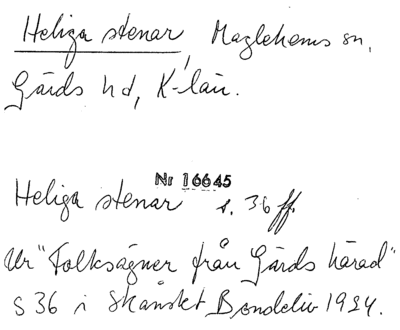 Heliga stenar, Maglehems sn,
Gärds hd, K-län.
Nr 16645
Heliga stenar s. 36 ff
Ur "Folksägner från Gärds härad"
s 36 i Skånskt Bondeliv 1924.